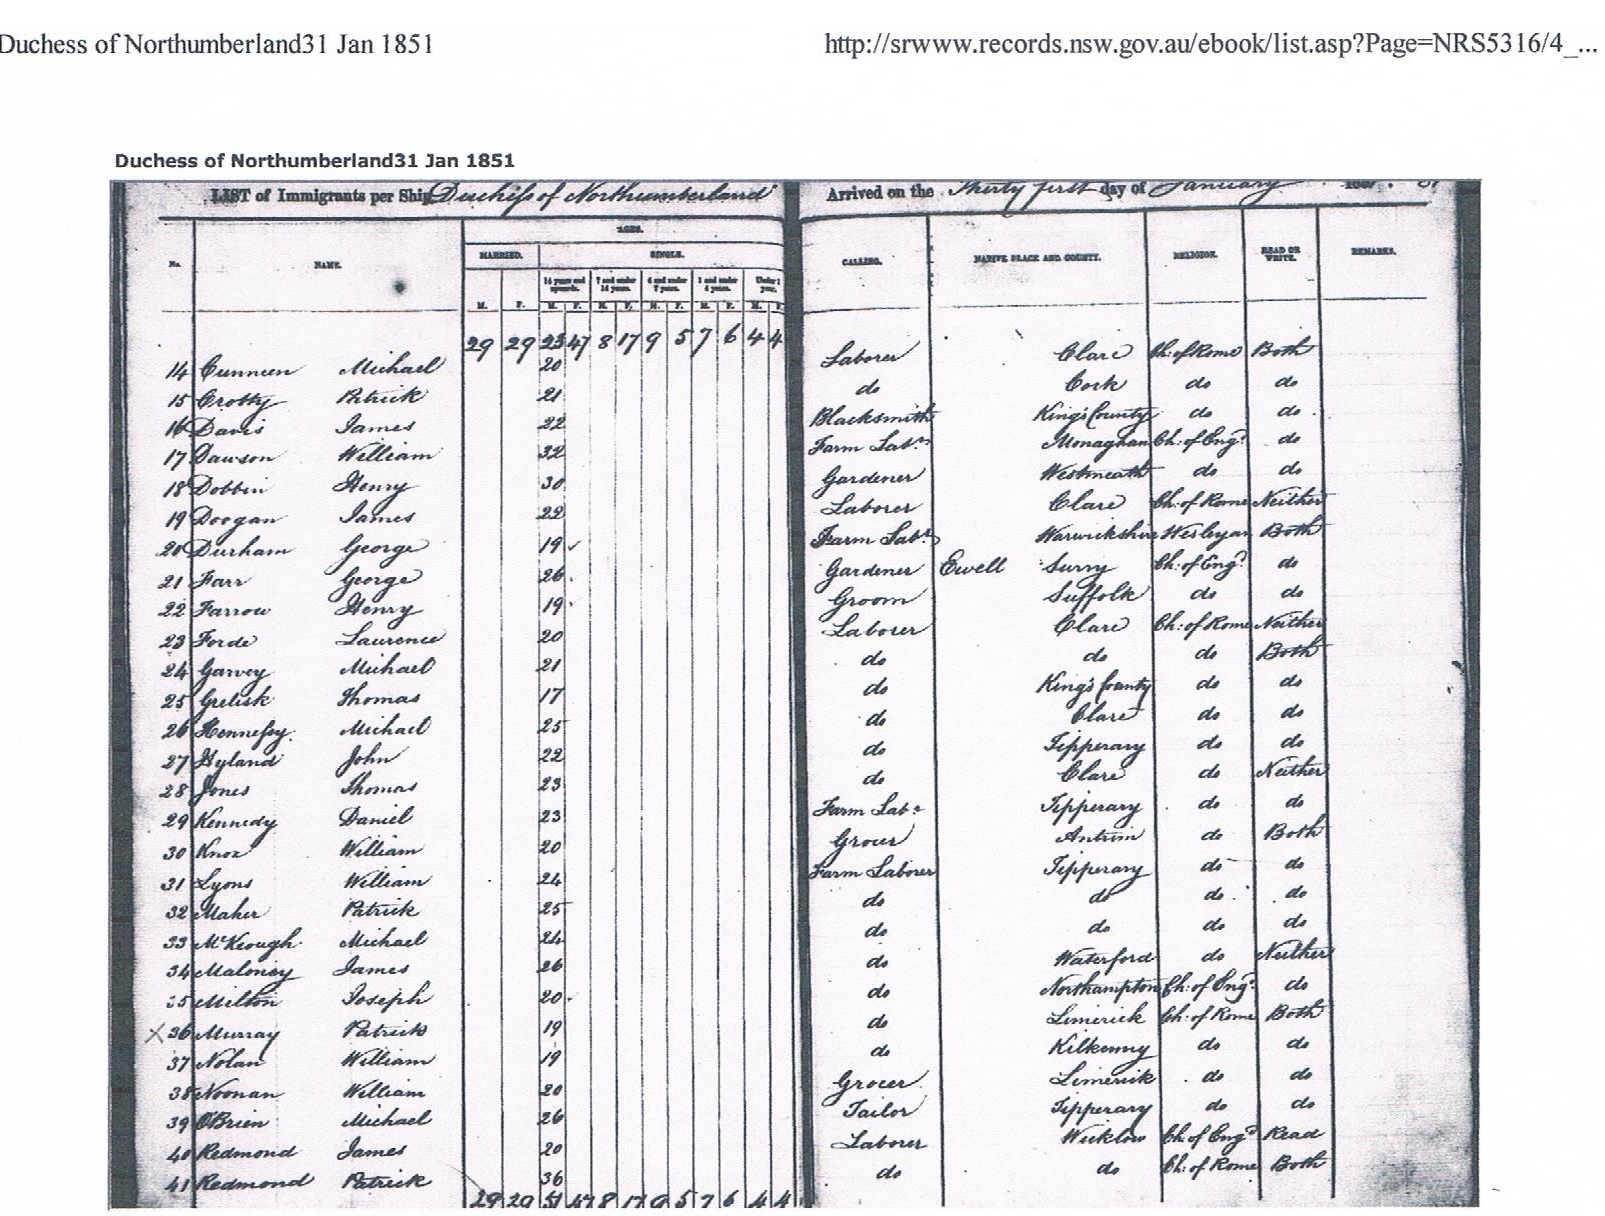 Duchess of Northumberland31 Jan 1851 http://srwww.records.nsw.gov.au/ebook/list.asp?Page=NRS5316/4_...
Duchess of Northumberland31 Jan 1851
LIST of Immigrants per Ship Duchess of Northumberland Arrived on the Thirty first day of January
AGES.
MARRIED. SINGLE.
No. NAME. CALLING. NATIVE PLACE AND COUNTY. RELIGION. READ OR WRITE. REMARKS.
14 years and upwards. 7 and under 14 years. 4 and under 7 years. 1 and under 4 years. Under 1 year.
M. F. M. F. M. F. M. F. M. F. M. F.
29 29 23 47 8 17 9 5 7 6 4 4
14 Cunneen Michael 20 Laborer Clare Ch: of Rome Both
15 Crotty Patrick 21 do Cork do do
16 Davis James 22 Blacksmith King's County do do
17 Dawson William 32 Farm Labr Monaghan Ch: of Engd do
18 Dobbin Henry 30 Gardener Westmeath do do
19 Doogan James 22 Laborer Clare Ch: of Rome Neither
20 Durham George 19 Farm Labr Warwickshire Wesleyan Both
21 Farr George 26 Gardener Ewell Surry Ch: of Engd do
22 Farrow Henry 19 Groom Suffolk do do
23 Forde Laurence 20 Laborer Clare Ch: of Rome Neither
24 Garvey Michael 21 do do do Both
25 Grelish Thomas 17 do King's County do do
26 Hennessy Michael 25 do Clare do do
27 Hyland John 22 do Tipperary do do
28 Jones Thomas 23 do Clare do Neither
29 Kennedy Daniel 23 Farm Labr Tipperary do do
30 Knox William 20 Grocer Antrim do Both
31 Lyons William 24 Farm Laborer Tipperary do do
32 Maher Patrick 25 do do do do
33 McKeough Michael 24 do do do do
34 Maloney James 26 do Waterford do Neither
35 Milton Joseph 20 do Northampton Ch: of Engd do
X 36 Murray Patrick 19 do Limerick Ch: of Rome Both
37 Nolan William 19 do Kilkenny do do
38 Noonan William 20 Grocer Limerick do do
39 O'Brien Michael 26 Tailor Tipperary do do
40 Redmond James 20 Laborer Wicklow Ch of Engd Read
41 Redmond Patrick 36 do do Ch: of Rome Both
29 29 51 47 8 17 9 5 7 6 4 4